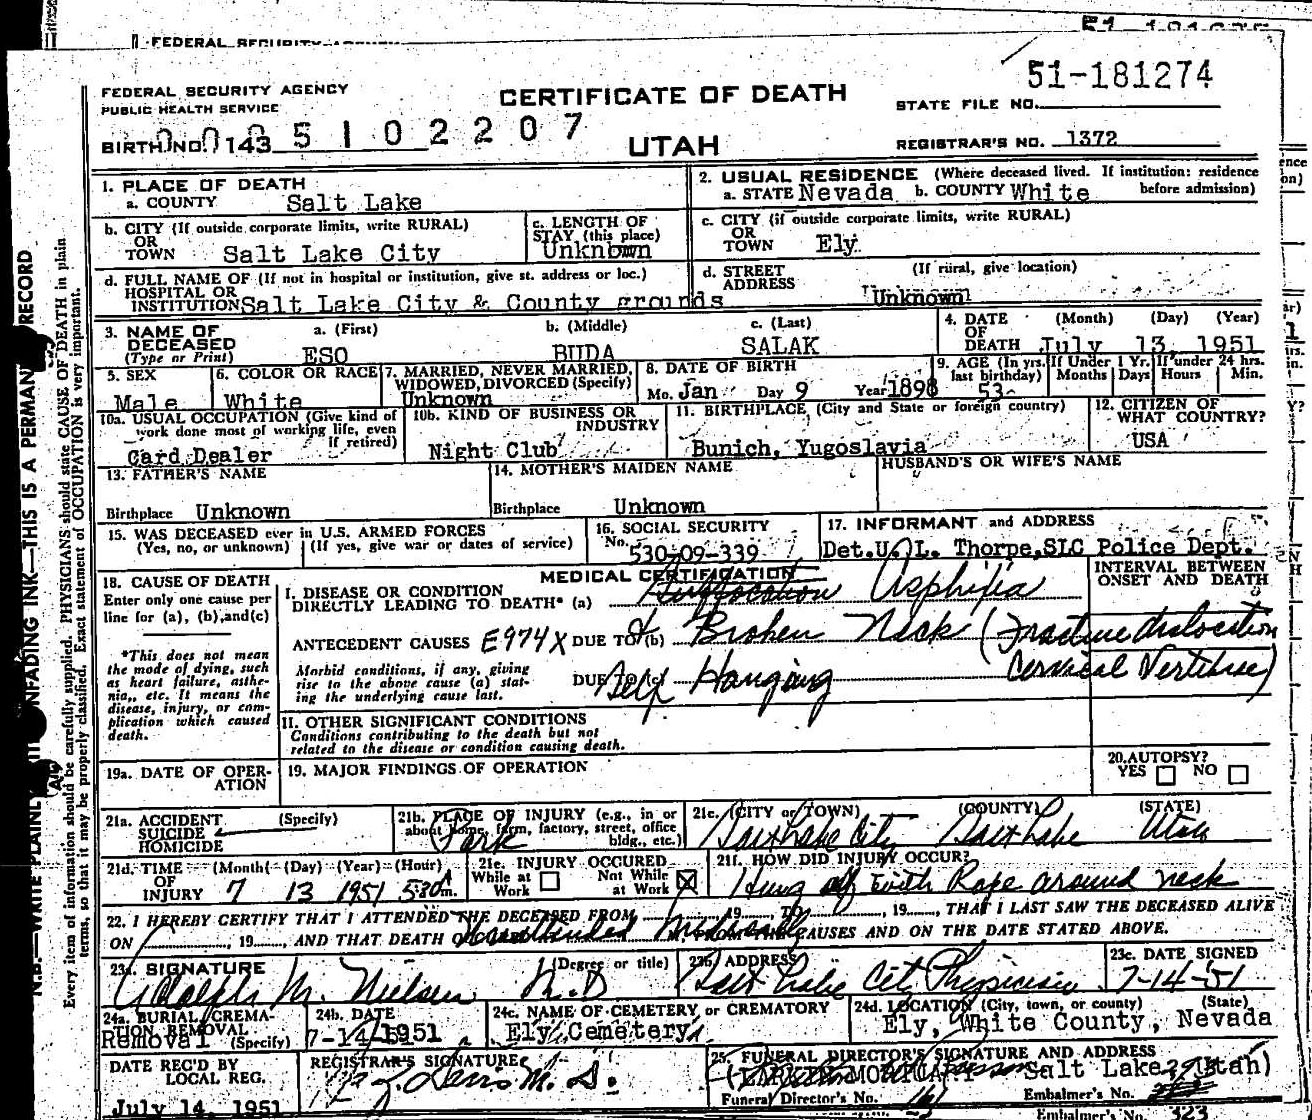 51-181274
FEDERAL SECURITY AGENCY
PUBLIC HEALTH SERVICE
CERTIFICATE OF DEATH
STATE FILE NO.
BIRTH NO. 143 5 1 0 2 2 0 7
UTAH
REGISTRAR'S NO. 1372
1. PLACE OF DEATH
a. COUNTY Salt Lake
2. USUAL RESIDENCE (Where deceased lived. If institution: residence before admission)
a. STATE Nevada b. COUNTY White
b. CITY (If outside corporate limits, write RURAL)
OR
TOWN Salt Lake City
c. LENGTH OF
STAY (this place)
Unknown
c. CITY (if outside corporate limits, write RURAL)
OR
TOWN Ely
d. FULL NAME OF (If not in hospital or institution, give st. address or loc.)
HOSPITAL OR
INSTITUTION Salt Lake City & County grounds
d. STREET
ADDRESS
(If rural, give location)
Unknown
3. NAME OF
DECEASED
(Type or Print)
a. (First)
ESO
b. (Middle)
BUDA
c. (Last)
SALAK
4. DATE
OF
DEATH
(Month) (Day) (Year)
July 13, 1951
5. SEX
Male
6. COLOR OR RACE
White
7. MARRIED, NEVER MARRIED,
WIDOWED, DIVORCED (Specify)
Unknown
8. DATE OF BIRTH
Mo. Jan Day 9 Year 1898
9. AGE (In yrs. last birthday)
53
If Under 1 Yr.
Months Days
If under 24 hrs.
Hours Min.
10a. USUAL OCCUPATION (Give kind of
work done most of working life, even
if retired)
Card Dealer
10b. KIND OF BUSINESS OR
INDUSTRY
Night Club
11. BIRTHPLACE (City and State or foreign country)
Bunich, Yugoslavia
12. CITIZEN OF
WHAT COUNTRY?
USA
13. FATHER'S NAME
Birthplace Unknown
14. MOTHER'S MAIDEN NAME
Birthplace Unknown
HUSBAND'S OR WIFE'S NAME
15. WAS DECEASED ever in U.S. ARMED FORCES
(Yes, no, or unknown) (If yes, give war or dates of service)
16. SOCIAL SECURITY
No. 530-09-339
17. INFORMANT and ADDRESS
Det. U. L. Thorpe, SLC Police Dept.
18. CAUSE OF DEATH
Enter only one cause per
line for (a), (b), and (c)
*This does not mean
the mode of dying, such
as heart failure, asthe-
nia, etc. It means the
disease, injury, or com-
plication which caused
death.
MEDICAL CERTIFICATION
INTERVAL BETWEEN
ONSET AND DEATH
I. DISEASE OR CONDITION
DIRECTLY LEADING TO DEATH* (a) Suffocation Asphixia
ANTECEDENT CAUSES E974X DUE TO (b) & Broken Neck (Fracture dislocation
Cervical Vertebrae)
Morbid conditions, if any, giving
rise to the above cause (a) stat-
ing the underlying cause last.
DUE TO (c) Self Hanging
II. OTHER SIGNIFICANT CONDITIONS
Conditions contributing to the death but not
related to the disease or condition causing death.
19a. DATE OF OPER-
ATION
19. MAJOR FINDINGS OF OPERATION
20. AUTOPSY?
YES NO
21a. ACCIDENT
SUICIDE
HOMICIDE
(Specify)
21b. PLACE OF INJURY (e.g., in or
about home, farm, factory, street, office
bldg., etc.)
Park
21c. (CITY or TOWN) (COUNTY) (STATE)
Salt Lake City Salt Lake Utah
21d. TIME
OF
INJURY
(Month) (Day) (Year) (Hour)
7 13 1951 530 A m.
21e. INJURY OCCURED
While at
Work
Not While
at Work
21f. HOW DID INJURY OCCUR?
Hung with Rope around neck
22. I HEREBY CERTIFY THAT I ATTENDED THE DECEASED FROM 19 TO 19 , THAT I LAST SAW THE DECEASED ALIVE
ON , 19 , AND THAT DEATH CAUSES AND ON THE DATE STATED ABOVE.
Unattended Medically
23a. SIGNATURE (Degree or title)
Adolph M. Nielsen M.D
23b. ADDRESS
Salt Lake City Physician
23c. DATE SIGNED
7-14-51
24a. BURIAL, CREMA-
TION REMOVAL
(Specify)
Removal
24b. DATE
7-14/1951
24c. NAME OF CEMETERY or CREMATORY
Ely Cemetery
24d. LOCATION (City, town, or county) (State)
Ely, White County, Nevada
DATE REC'D BY
LOCAL REG.
July 14, 1951
REGISTRAR'S SIGNATURE
25. FUNERAL DIRECTOR'S SIGNATURE AND ADDRESS
MORTUARY Salt Lake Utah
Funeral Director's No.
Embalmer's No.
Embalmer's No. 323
N.B.—WRITE PLAINLY UNFADING INK—THIS IS A PERMANENT RECORD
Every item of information should be carefully supplied. PHYSICIANS should state CAUSE OF DEATH in plain
terms, so that it may be properly classified. Exact statement of OCCUPATION is very important.